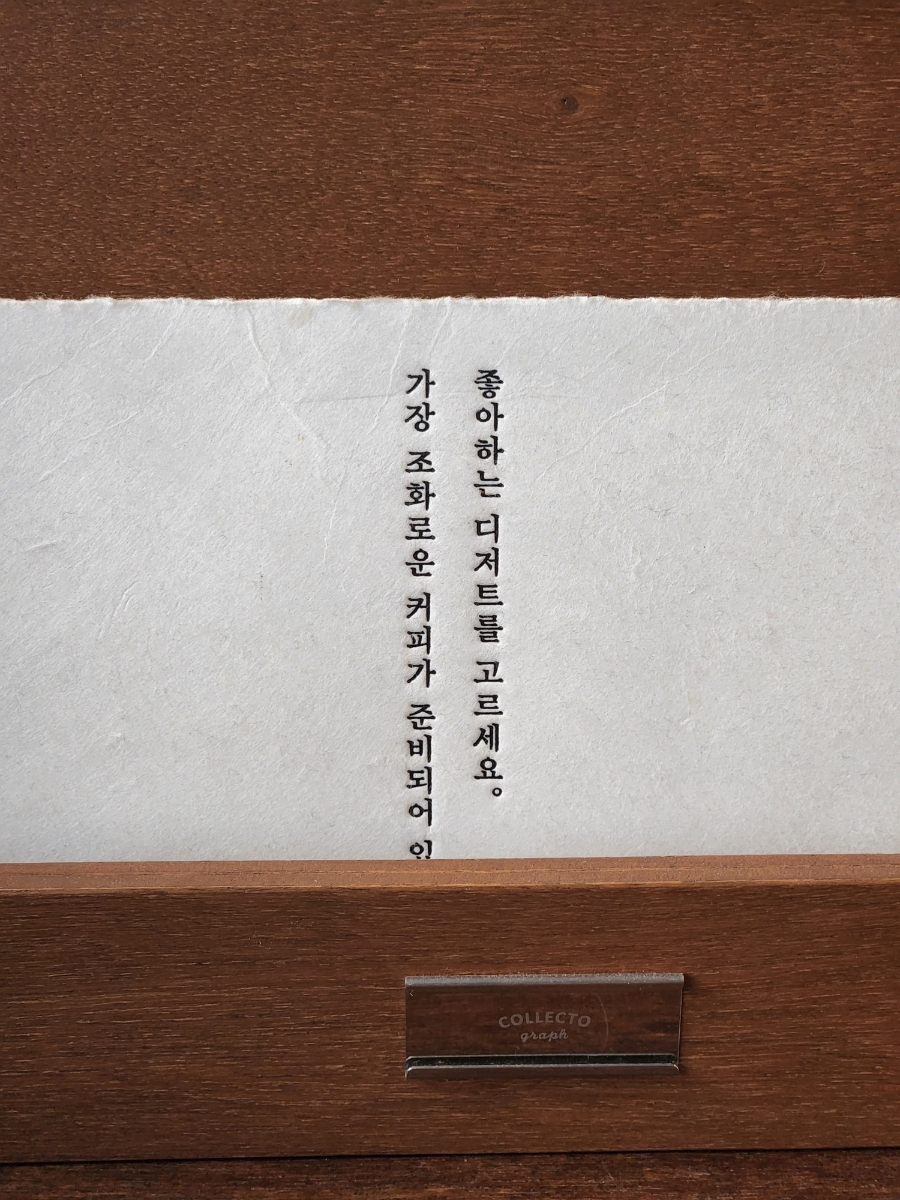 좋아하는 디저트를 고르세요。
가장 조화로운 커피가 준비되어
COLLECTO
graph